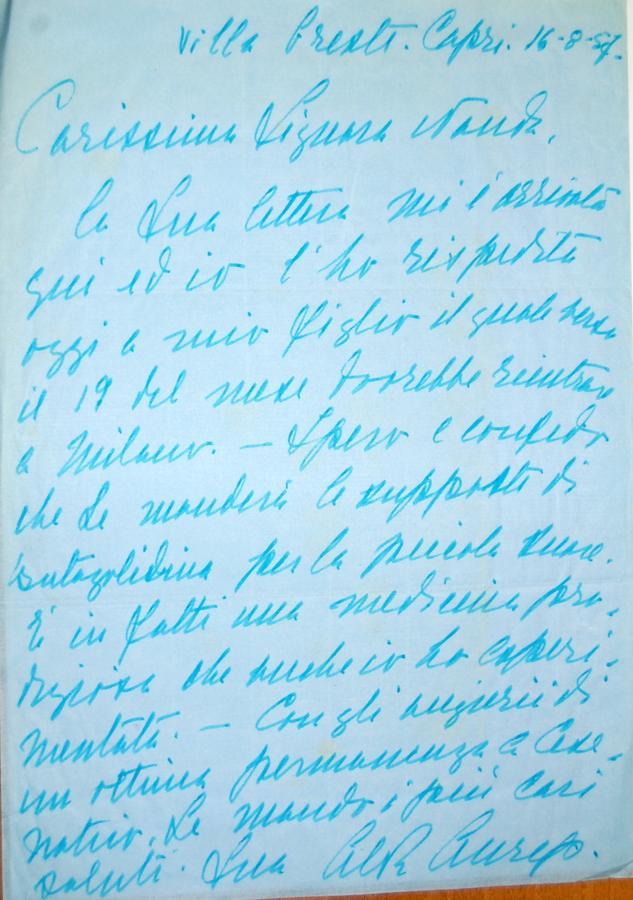 Villa Oreste. Capri. 16-8-57.
Carissima Signora Nanda,
la Sua lettera mi è arrivata
qui ed io l'ho rispedita
oggi a mio figlio il quale verso
il 19 del mese dovrebbe rientrare
a Milano. — Spero e confido
che Le manderà le supposte di
per la piccola suora.
È in fatti una medicina pro-
digiosa che anche io ho esperi-
mentata. — Con gli auguri di
un ottima permanenza a Cese-
natico. Le mando i più cari
saluti. Sua